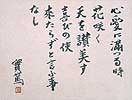 心愛に満つる時
花咲く
天を讃美す
喜びの使
来たらずと言ふ事
なし
實篤